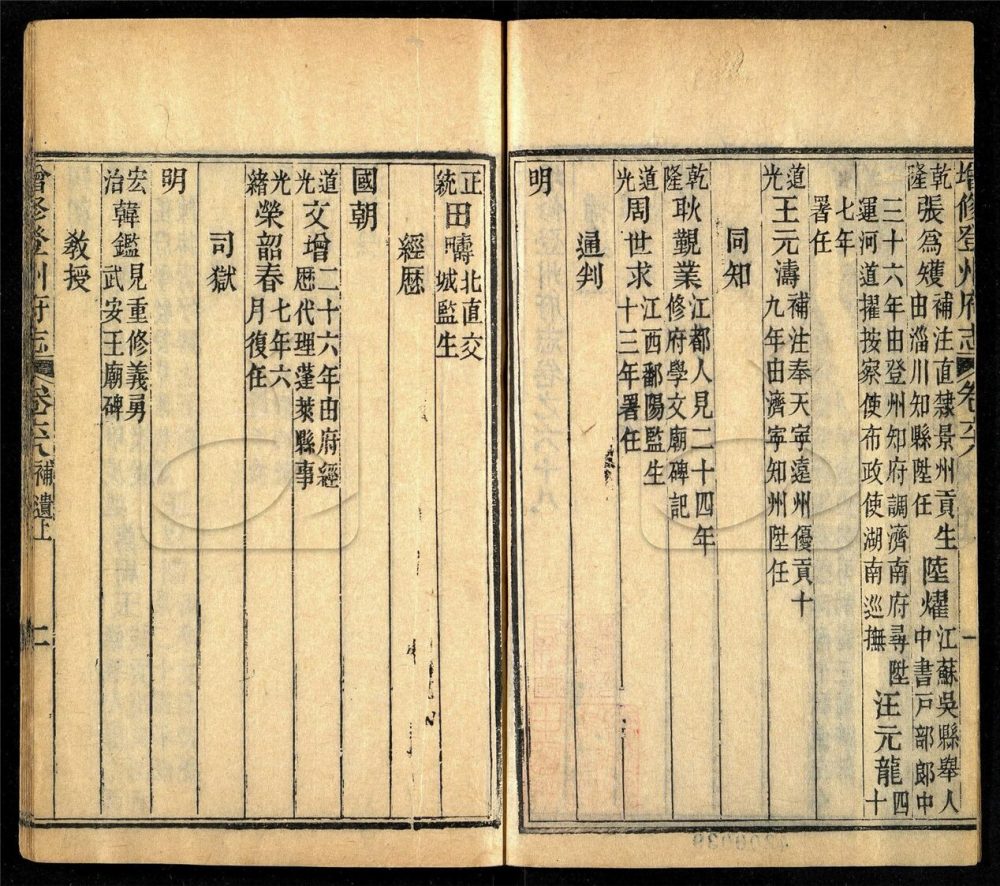 增修登州府志 卷六八 一
乾隆 張爲矱 補注直隸景州貢生由淄川知縣陞任 陸燿 江蘇吳縣舉人中書戸部郎中
三十六年由登州知府調濟南府尋陞運河道擢按察使布政使湖南巡撫 汪元龍 四十
七年署任
道光 王元濤 補注奉天寧遠州優貢十九年由濟寧知州陞任
同知
乾隆 耿覲業 江都人見二十四年修府學文廟碑記
道光 周世求 江西鄱陽監生十三年署任
通判
明
正統 田疇 北直交城監生
經歴
國朝
道光 文增 二十六年由府經歴代理蓬萊縣事
光緒 榮韶春 七年六月復任
司獄
明
宏治 韓鑑 見重修義勇武安王廟碑
敎授
增修登州府志 卷六八 補遺上 二